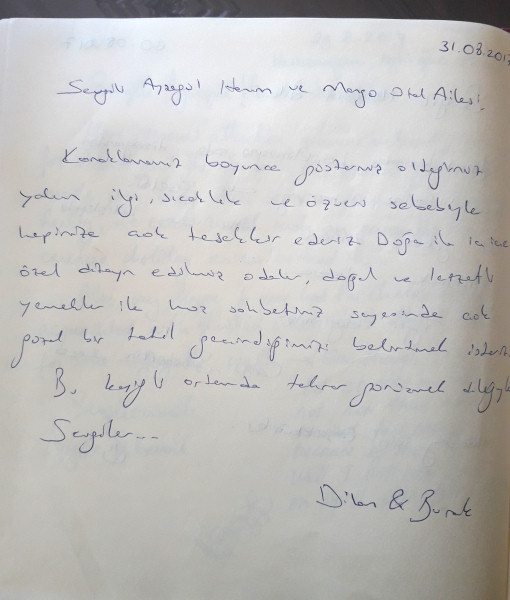 31.08.2017
Sevgili Ayşegül Hanım ve Margo Otel Ailesi,
Konaklamamız boyunca göstermiş olduğunuz
yakın ilgi, sıcaklık ve özveri sebebiyle
hepinize çok teşekkür ederiz. Doğa ile iç içe
özel dizayn edilmiş odalar, doğal ve lezzetli
yemekler ile hoş sohbetiniz sayesinde çok
güzel bir tatil geçirdiğimizi belirtmek isteriz
Bu keyifli ortamda tekrar görüşmek dileğiyle
Sevgiler...
Dilan & Burak